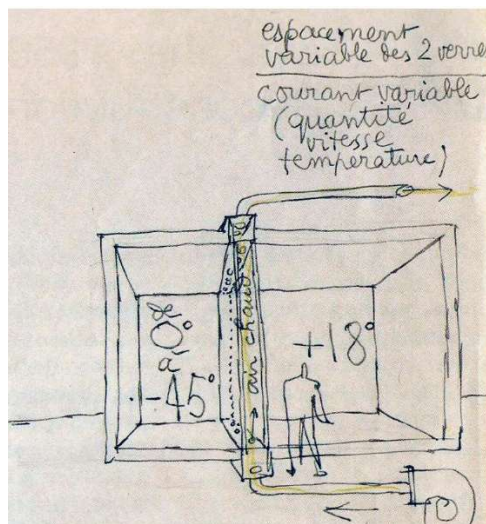 espacement
variable des 2 verres
courant variable
(quantité
vitesse
température)
air chaud
0°
à
-45°
+18°